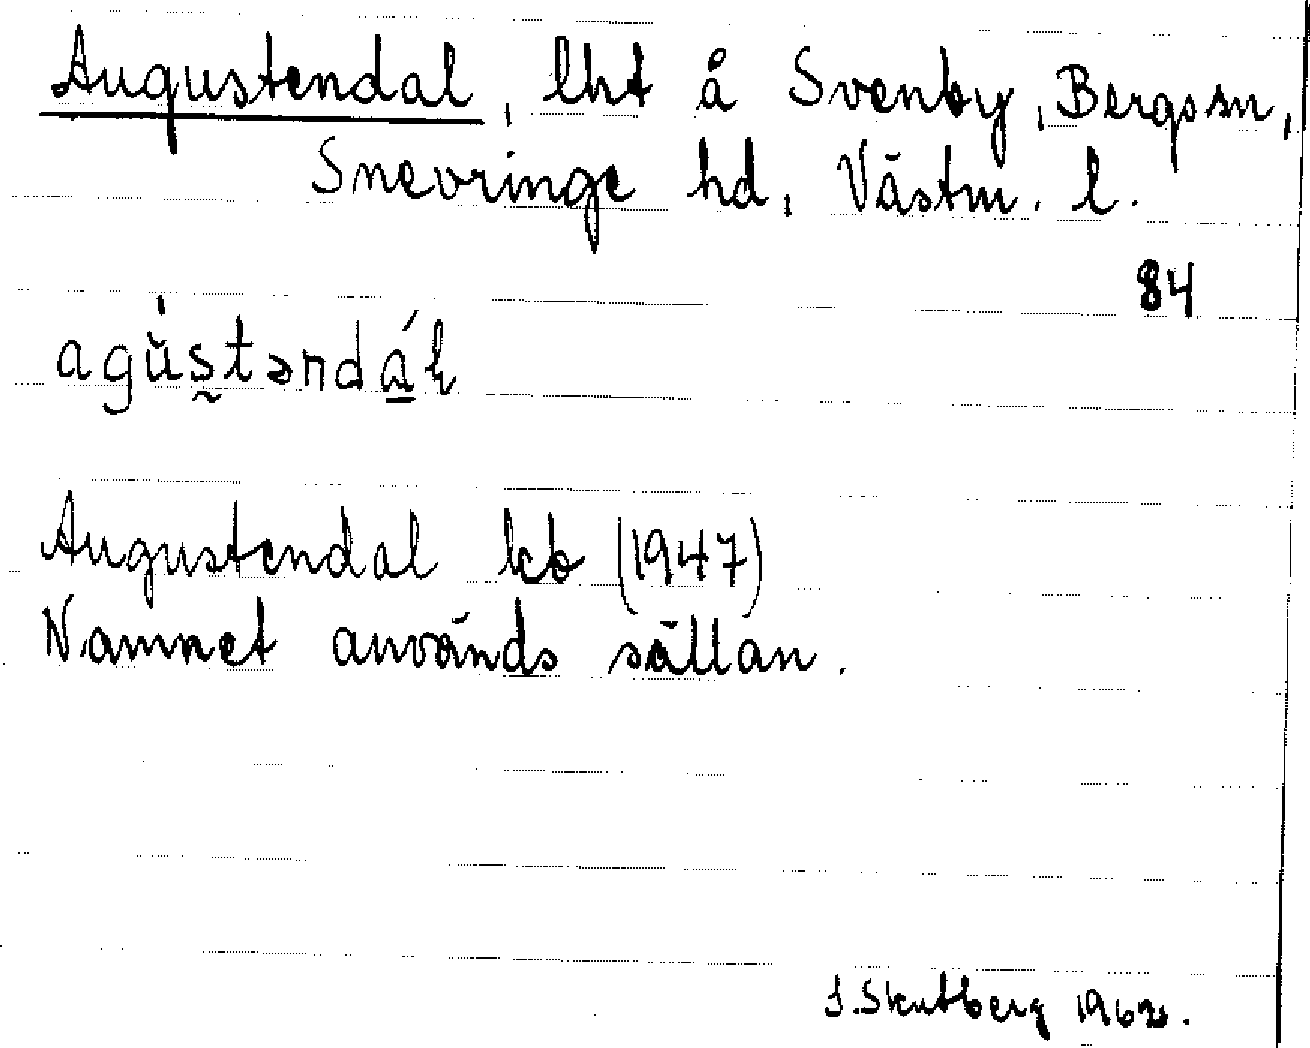 Augustendal, lht å Svenby, Bergs sn,
Snevringe hd, Västm. l.
84
agǘs̰təndá̱ɫ
Augustendal kb (1947)
Namnet används sällan.
Skutberg